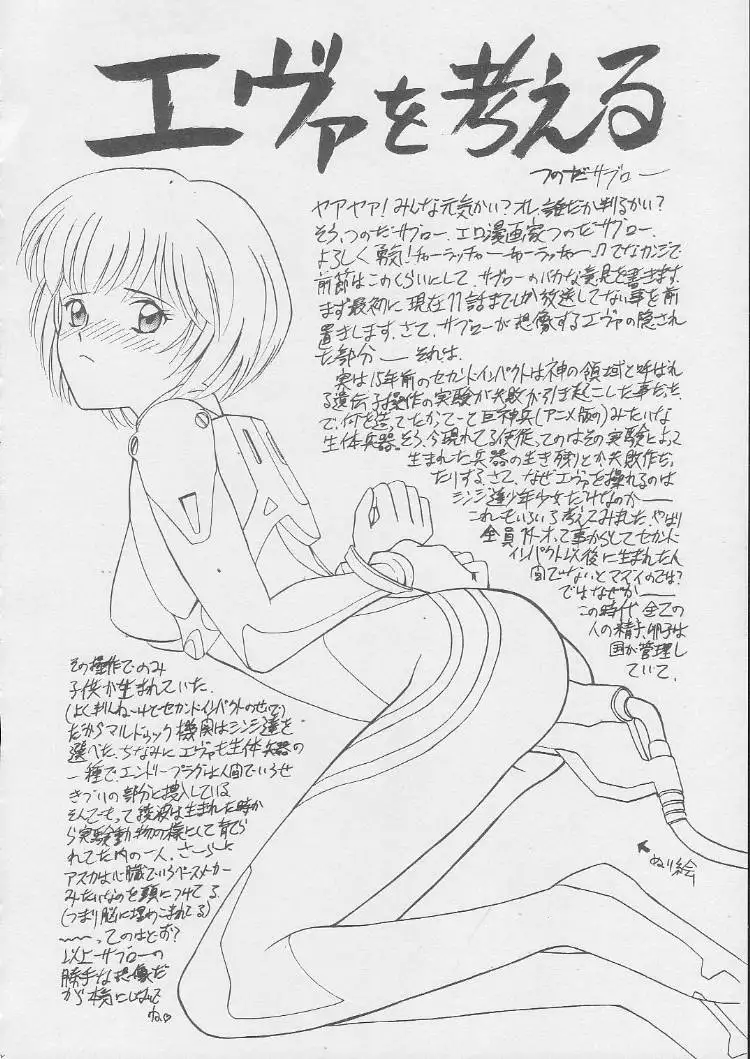 エヴァを考える
つのだサブロー
ヤアヤァ!みんな元気かい?オレ、誰だか判るかい?
そう、つのだサブロー、エロ漫画家つのだサブロー、
よろしく勇気!チャーラッチャーチャーラッチャー♪でなカンジで
前節はこのくらいにして、サブローのバカな意見を書きます。
まず最初に現在11話までしか放送してない事を前
置きします。さて、サブローが想像するエヴァの隠され
た部分——それは、
実は15年前のセカンドインパクトは神の領域と呼ばれ
る遺伝子操作の実験が失敗が引き起こした事だった
で、何を造ってたかてーと巨神兵(アニメ版の)みたいな
生体兵器。そう、今現れてる使徒、てのはその実験によって
生まれた兵器の生き残りとか失敗作だっ
たりする。さて、なぜエヴァを操れるのは
シンジ達少年少女だけなのか——
これもいろいろ考えてみました。やはり
全員14才って事からしてセカンド
インパクト以後に生まれた人
間でないとマズイのでは?
ではなぜか——
この時代、全ての
人の精子、卵子は
国が管理し
ていて、
その操作でのみ
子供が生まれていた。
(よく判んねーけどセカンドインパクトのせいで)
だからマルドゥック機関はシンジ達を
選べた。ちなみにエヴァも生体兵器の
一種で、エントリープラグは人間でいうせ
きづいの部分と挿入している
そんでもって綾波は生まれた時か
ら実験動物の様にして育てら
れてた内の一人。さーらに
アスカは心臓でいうペースメーカー
みたいなのを頭につけてる
(つまり脳に埋めこまれてる)
〜〜ってのはどお?
以上サブローの
勝手な想像だ
が本気にしないで
ね♡
ぬり絵